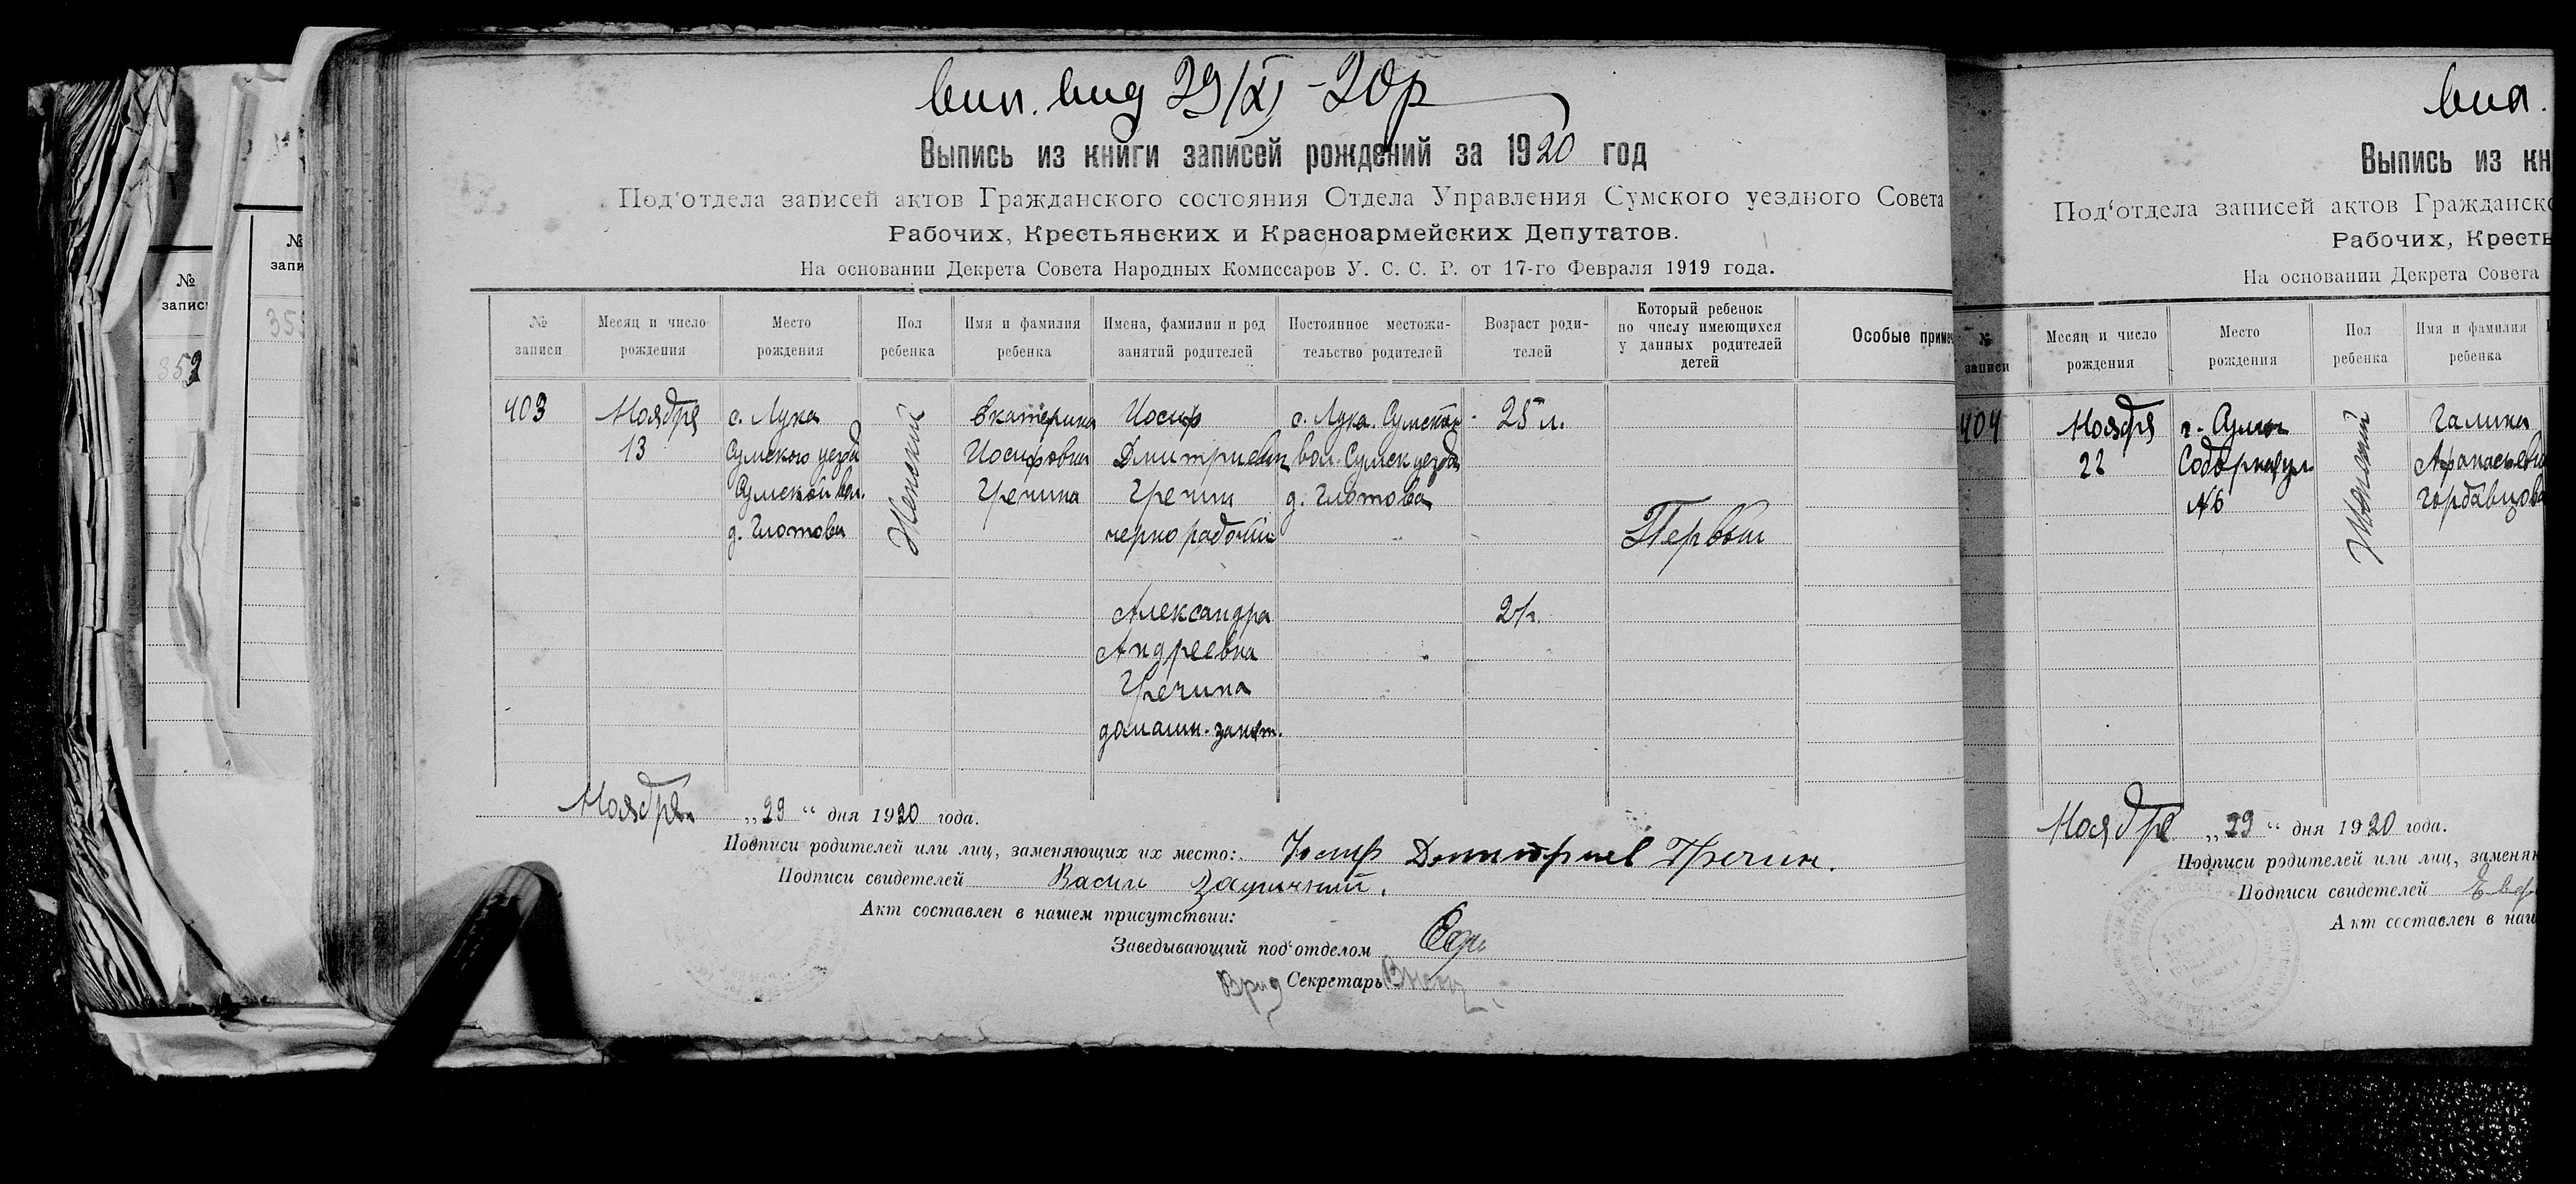 №
запис
353
№
запи
355
вип. вид 29/XI - 20 р
Выпись из книги записей рождений за 1920 год
Под‘отдела записей актов Гражданского состояния Отдела Управления Сумского уездного Совета
Рабочих, Крестьянских и Красноармейских Депутатов.
На основании Декрета Совета Народных Комиссаров У. С. С. Р. от 17-го Февраля 1919 года.
№ записи
Месяц и число рождения
Место рождения
Пол ребенка
Имя и фамилия ребенка
Имена, фамилии и род занятий родителей
Постоянное местожительство родителей
Возраст родителей
Который ребенок по числу имеющихся у данных родителей детей
Особые приме
403
Ноября
13
с. Лука
Сумского уезда
Сумской вол.
д. Глотова
Женский
Екатерина
Иосифовна
Гречина
Иосиф
Дмитриевич
Гречин
чернорабочий
Александра
Андреевна
Гречина
домашн. занят.
с. Лука. Сумской
вол. Сумск уезда
д. Глотова
25 л.
21 г.
Первый
Ноября „29“ дня 1920 года.
Подписи родителей или лиц, заменяющих их место: Иосиф Дмитриев Гречин.
Подписи свидетелей Василь
Акт составлен в нашем присутствии:
Заведывающий под‘отделом
Врид Секретарь
вид.
Выпись из кн
Под‘отдела записей актов Гражданско
Рабочих, Кресть
На основании Декрета Совета
№ записи
Месяц и число рождения
Место рождения
Пол ребенка
Имя и фамилия ребенка
404
Ноября
22
г. Сумы
Соборная ул.
№6
Женский
Галина
Афанасьевн
Горбавцова
Ноября „29“ дня 1920 года.
Подписи родителей или лиц, заменя
Подписи свидетелей
Акт составлен в наш